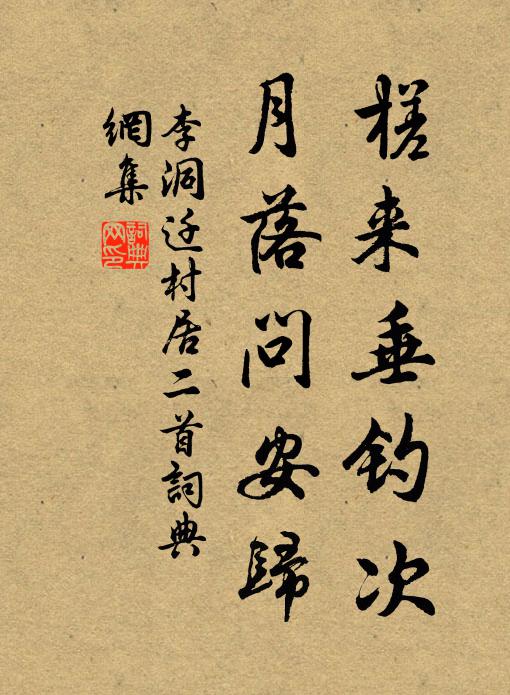 槎来垂钓次
月落问安歸
李洞迁村居二首詞典
網集
詞典
网印